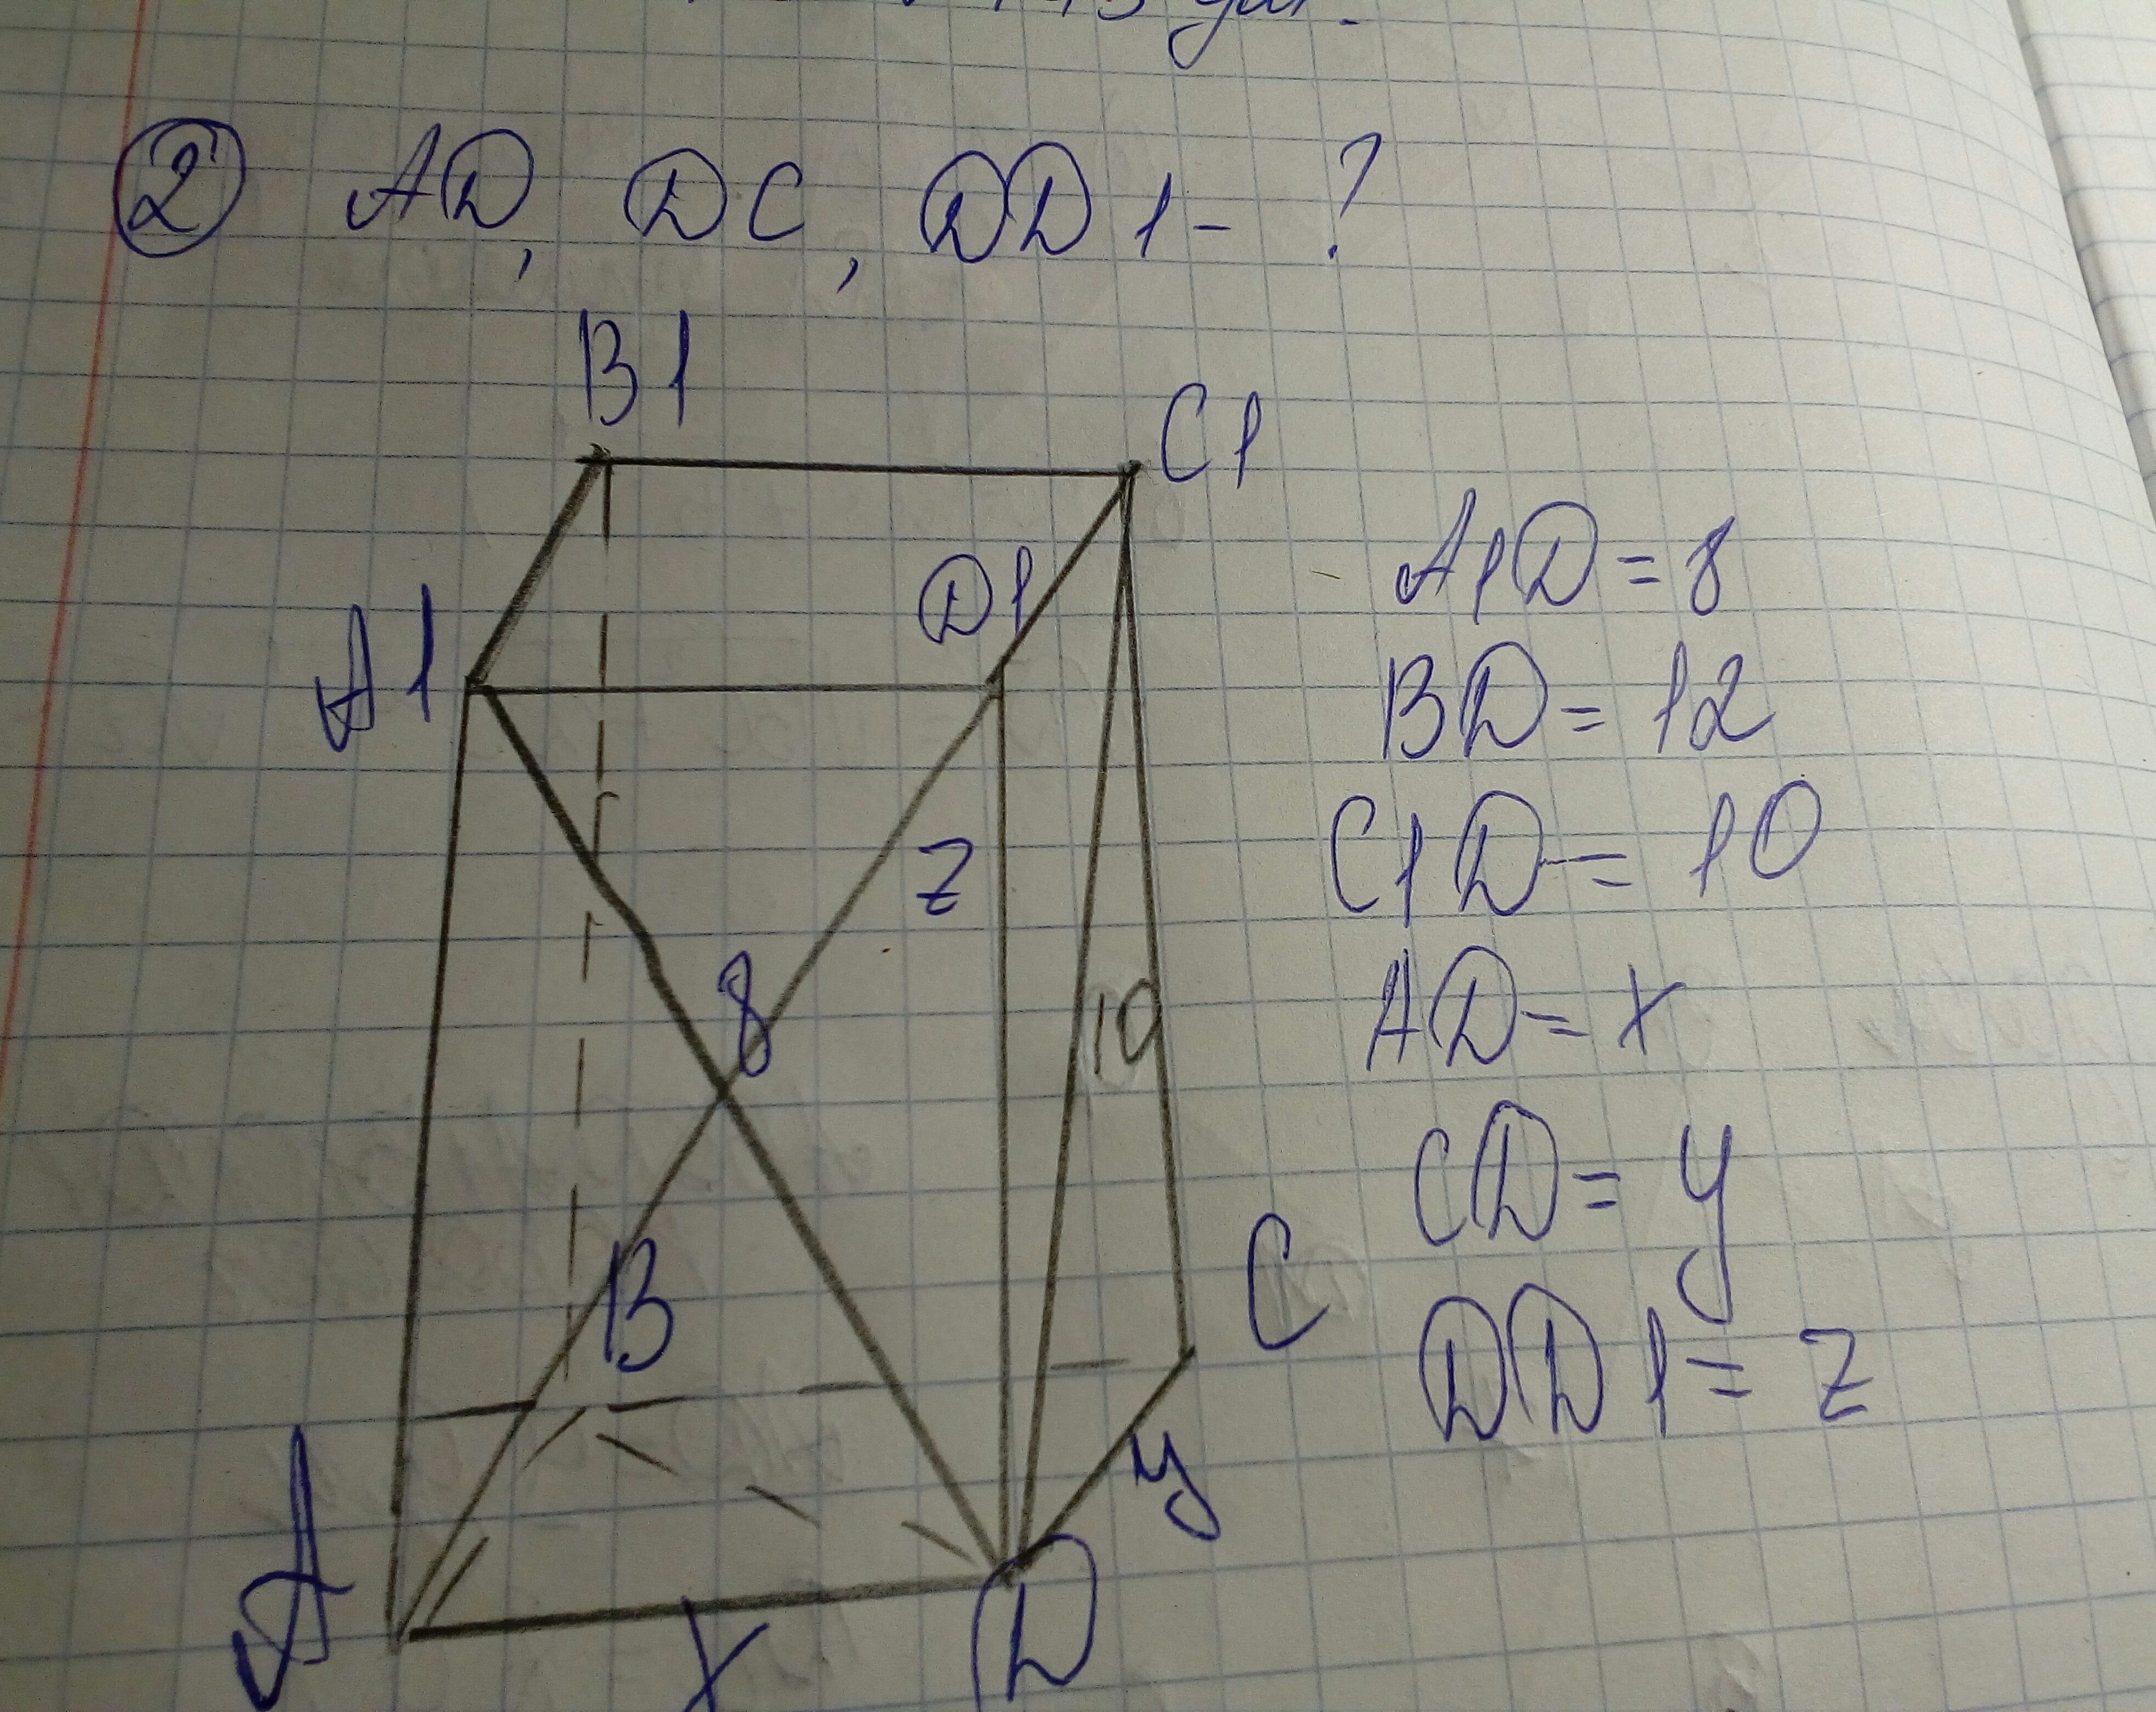 ② AD, DC, DD1 - ?
B1
C1
D1
A1
z
8
10
B
C
y
A
D
x
A1D = 8
BD = 12
C1D = 10
AD = x
CD = y
DD1 = z